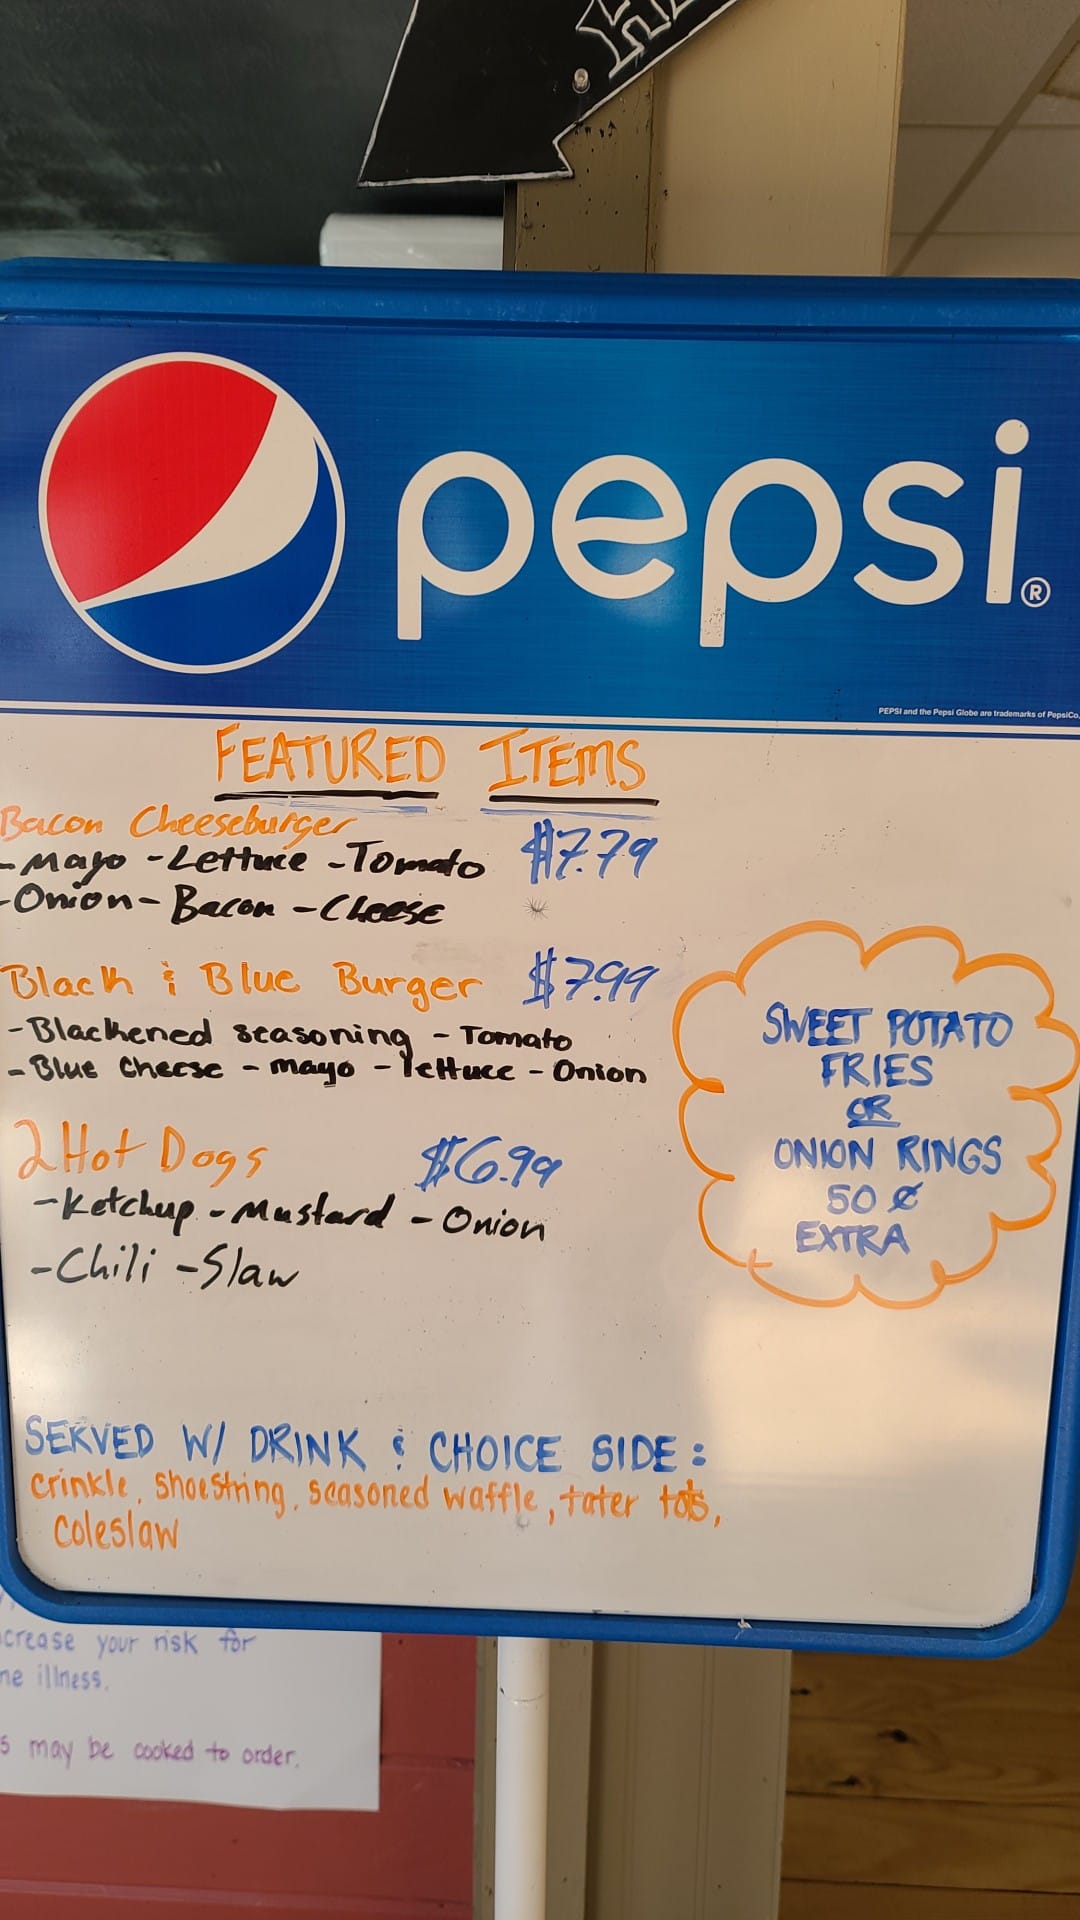 pepsi®
PEPSI and the Pepsi Globe are trademarks of PepsiCo,
FEATURED ITEMS
Bacon Cheeseburger
$7.79
-Mayo -Lettuce -Tomato
-Onion- Bacon -Cheese
Black & Blue Burger $7.99
-Blackened seasoning - Tomato
- Blue Cheese - mayo - lettuce - Onion
2 Hot Dogs $6.99
-Ketchup - Mustard - Onion
-Chili -Slaw
SWEET POTATO
FRIES
OR
ONION RINGS
50 ¢
EXTRA
SERVED W/ DRINK & CHOICE SIDE:
crinkle, shoestring, seasoned waffle, tater tots,
coleslaw
crease your risk for
ne illness.
s may be cooked to order.